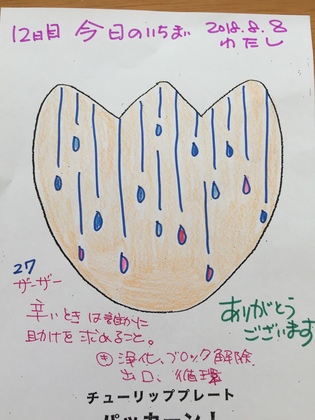 12日目 今日のいちまい 2018.8.8
わたし
27
ザーザー
辛いときは誰かに
助けを求めること。
ありがとう
ございます
キ 浄化、ブロック解除
出口、循環
チューリッププレート
パッカーン!